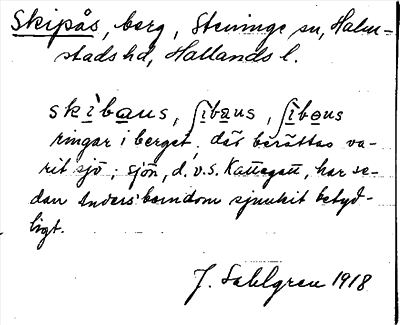 Skipås, berg, Steninge sn, Halm-
stads hd, Hallands l.
skìbaus, ʃìbaus, ʃìbɵus
ringar i berget, där berättas va-
rit sjö; sjön, d.v.s. Kattegatt, har se-
dan Anders' barndom sjunkit betyd-
ligt.
J. Sahlgren 1918